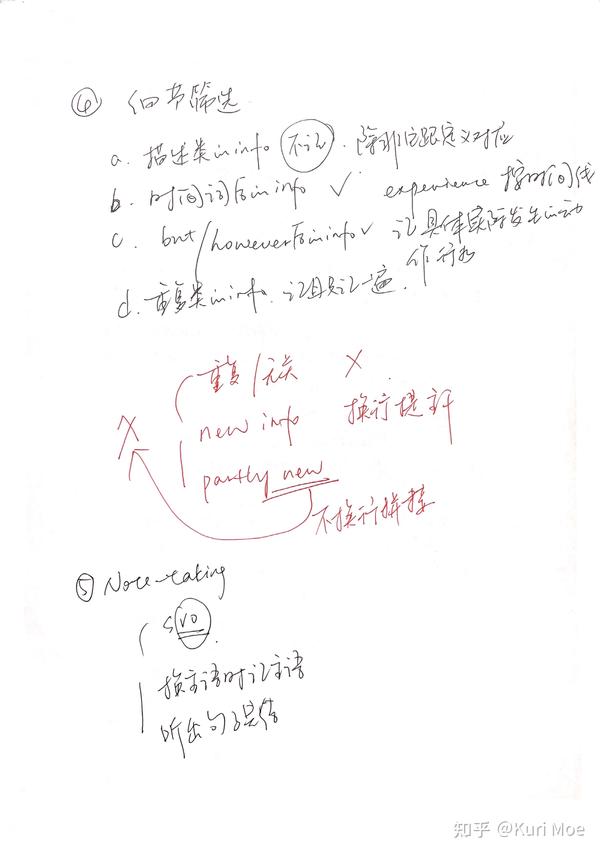 ④ 细节筛选
a. 描述类 in info 不记. 除非它跟定义对应
b. 时间词后 in info ✓ experience 按时间线
c. but/however后 in info ✓ 记具体实际发生 in 动作行为
d. 重复类 in info. 记且只记一遍.
重复/无关 X
X new info 换行提主干
partly new
不换行拼接
⑤ Note-taking
SVO.
换主语时记主语
听出句子
知乎 @Kuri Moe